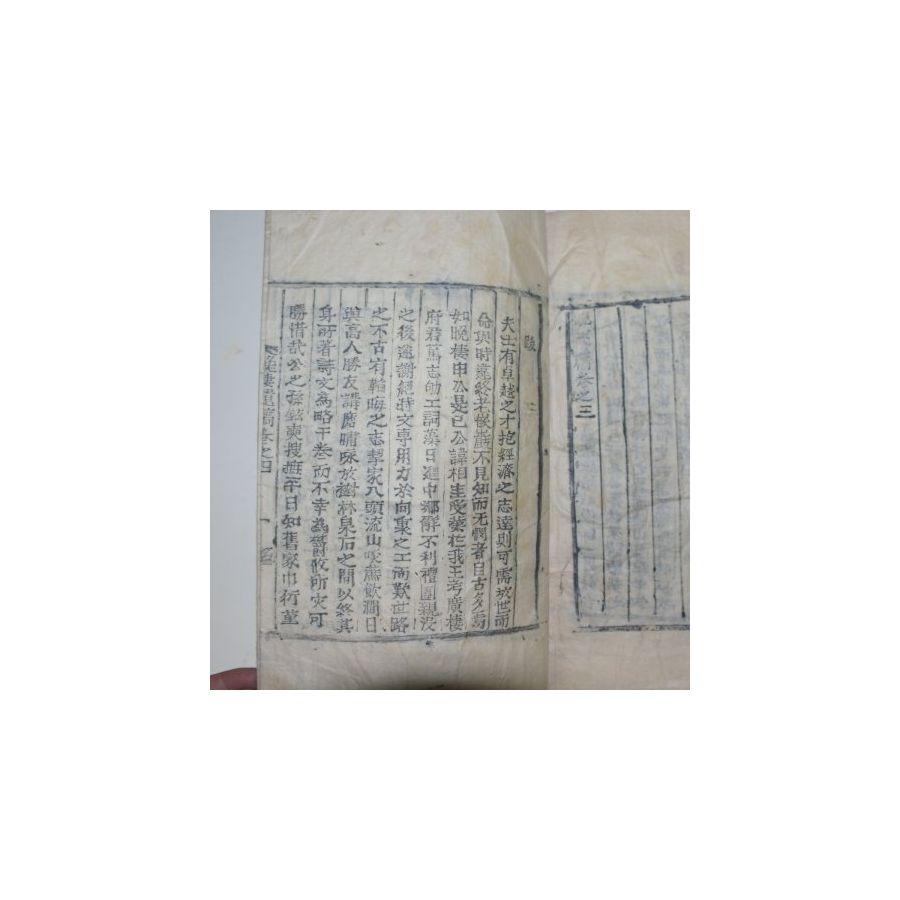 跋
夫士有卓越之才抱經濟之志達則可需於世而
命與時違終老巖不見知而无憫者自古多焉
如晩棲申公是已公諱相 受 於我王考廣棲
府君篤志劬工詞藻日進中鄕解不利禮圍親沒
之後遂謝絶時文專用力於向裏之工而歎世路
之不古有韜晦之志挈家入頭流山 飮澗日
與高人勝友講磨嘯咏放樹林泉石之間以終其
身所著詩文爲略干卷而不幸爲 攸所灾可
勝惜哉公之孫 奭搜 平日知舊家巾衍菫
晩棲遺稿卷之四 一
卷之三